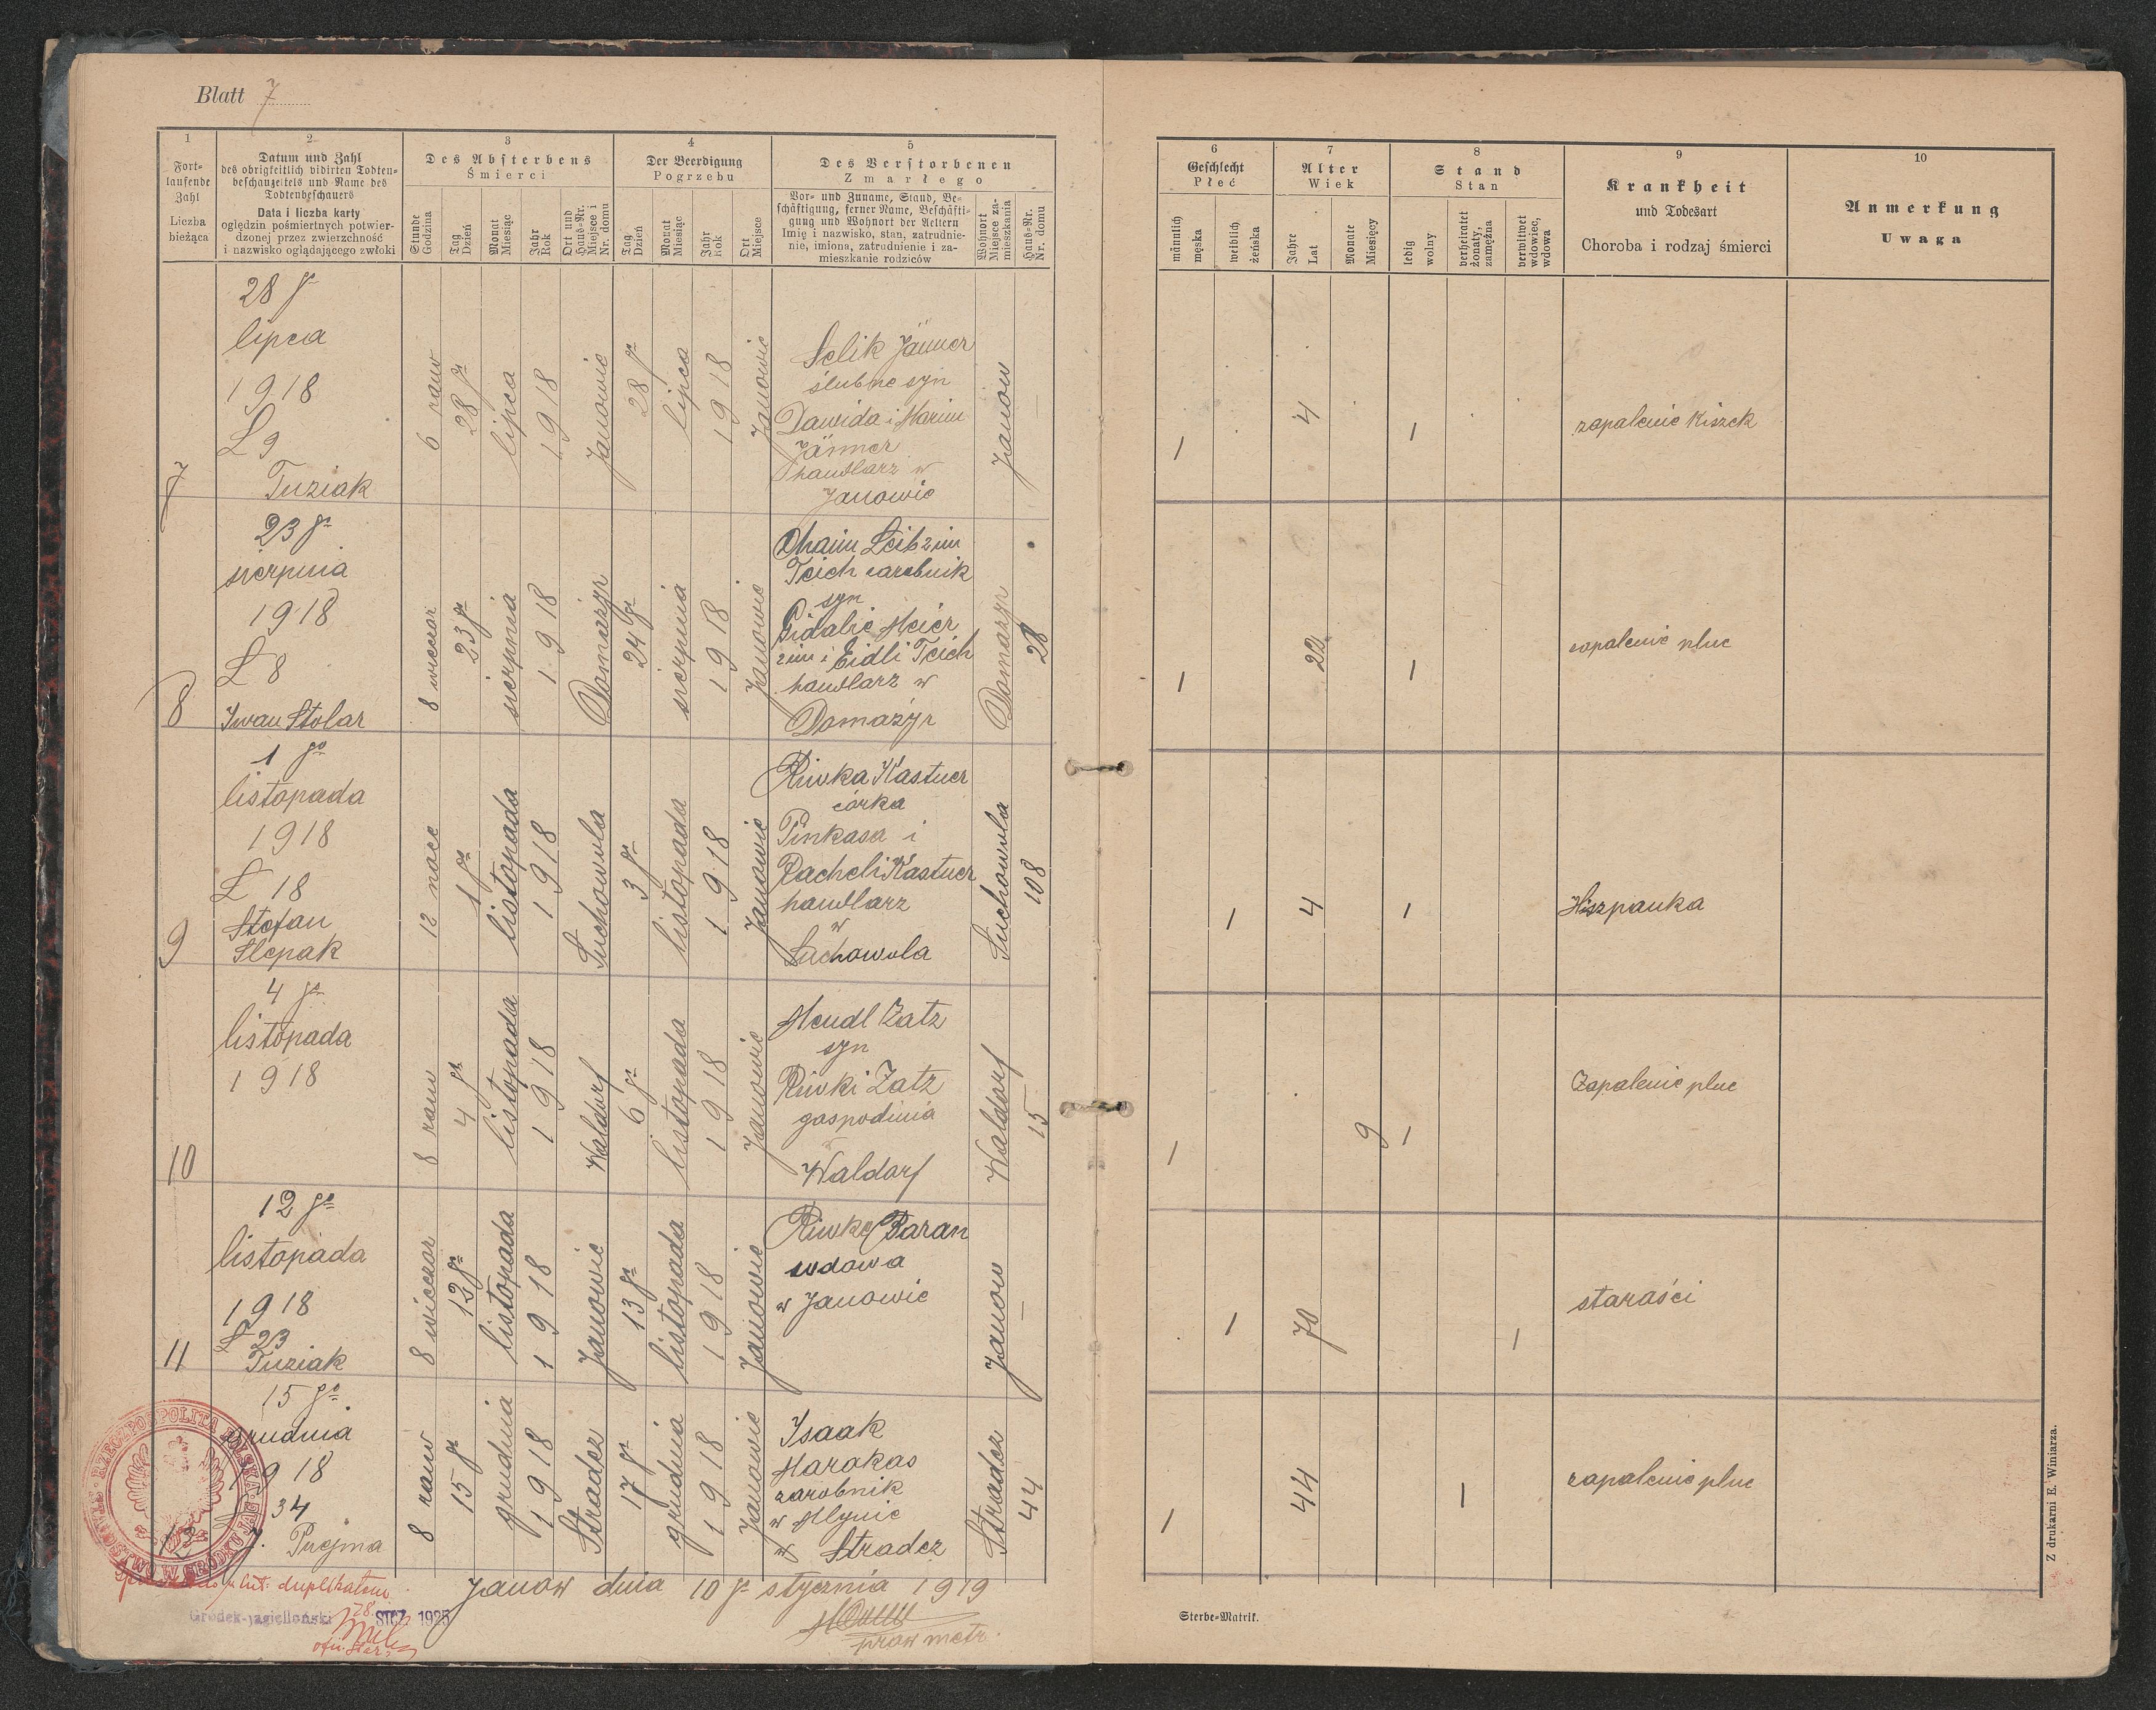 Blatt 7
1
Fort-
laufende
Zahl
Liczba
bieżąca
2
Datum und Zahl
des obrigkeitlich vidirten Todten-
beschauzettels und Name des
Todtenbeschauers
Data i liczba karty
oględzin pośmiertnych potwier-
dzonej przez zwierzchność
i nazwisko oglądającego zwłoki
3
Des Absterbens
Śmierci
Stunde
Godzina
Tag
Dzień
Monat
Miesiąc
Jahr
Rok
Ort und
Haus-Nr.
Miejsce i
Nr. domu
4
Der Beerdigung
Pogrzebu
Tag
Dzień
Monat
Miesiąc
Jahr
Rok
Ort
Miejsce
5
Des Verstorbenen
Zmarłego
Vor- und Zuname, Stand, Be-
schäftigung, ferner Name, Beschäfti-
gung und Wohnort der Aeltern
Imię i nazwisko, stan, zatrudnie-
nie, imiona, zatrudnienie i za-
mieszkanie rodziców
Wohnort
Miejsce za-
mieszkania
Haus-Nr.
Nr. domu
6
Geschlecht
Płeć
männlich
męska
weiblich
żeńska
7
Alter
Wiek
Jahre
Lat
Monate
Miesięcy
8
Stand
Stan
ledig
wolny
verheiratet
żonaty,
zamężna
verwitwet
wdowiec,
wdowa
9
Krankheit
und Todesart
Choroba i rodzaj śmierci
10
Anmerkung
Uwaga
7
28 go
lipca
1918
L 9
Tuziak
6 rano
28 go
lipca
1918
Janowie
28 go
lipca
1918
Janowie
Selik Jänner
ślubne syn
Dawida i Marim
Jänner
handlarz w
Janowie
Janow
—
1
4
1
zapalenie kiszek
8
23 go
sierpnia
1918
L 8
Iwan Stolar
8 wieczor
23 go
sierpnia
1918
Domażyr
24 go
sierpnia
1918
Janowie
Chaim Leib zim
Teich zarobnik
syn
Gidalie Meier
zim i Eidli Teich
handlarz w
Domażyr
Domażyr
28
1
22
1
zapalenie pluc
9
1 go
listopada
1918
L 18
Stefan
Slepak
12 noce
1 go
listopada
1918
Suchowola
3 go
listopada
1918
Janowie
Riwka Kastner
córka
Pinkasa i
Racheli Kastner
handlarz
w
Suchowola
Suchowola
108
1
4
1
Hiszpanka
10
4 go
listopada
1918
8 rano
4 go
listopada
1918
Waldorf
6 go
listopada
1918
Janowie
Mendl Zatz
syn
Riwki Zatz
gospodinia
Waldorf
Waldorf
15
1
9
1
Zapalenie pluc
11
12 go
listopada
1918
L 23
Tuziak
8 wieczor
12 go
listopada
1918
Janowie
13 go
listopada
1918
Janowie
Riwke Baran
wdowa
w Janowie
Janow
—
1
70
1
starości
12
15 go
grudnia
1918
34
J. Puejma
8 rano
15 go
grudnia
1918
Stradcz
17 go
grudnia
1918
Janowie
Isaak
Marakas
zarobnik
w Mlynie
w Stradcz
Stradcz
44
1
44
1
zapalenie pluc
RZECZPOSPOLITA POLSKA
STAROSTWO W GRÓDKU JAG.
duplikatem
Gródek-Jagielloński 28. STCZ. 1925
Janow dnia 10 go stycznia 1919
prow metr.
Sterbe-Matrik.
Z drukarni E. Winiarza.